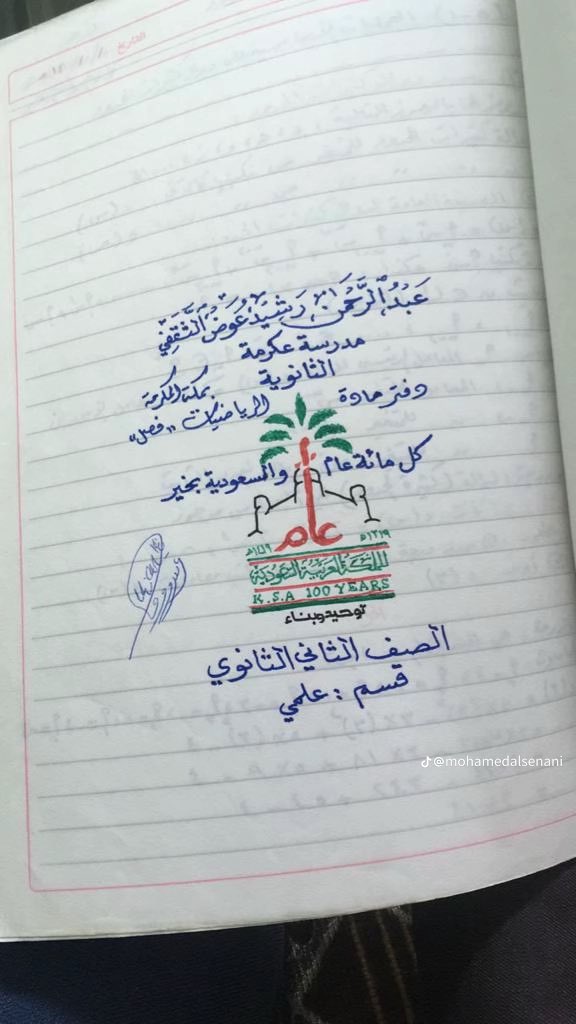 التاريخ / / ١٤ هـ
عَبْدُ الرَّحْمَنِ رَشِيدْ عَوَضْ الثَّقَفِيّ
مدرسة عكرمة
الثانوية
بمكة المكرمة
دفتر مادة الرياضيات "فصل"
كل مائة عام والسعودية بخير
عام
١٣١٩هـ ١٤١٩هـ
المملكة العربية السعودية
K.S.A 100 YEARS
توحيد وبناء
الصف الثاني الثانوي
قسم : علمي
@mohamedalsenani